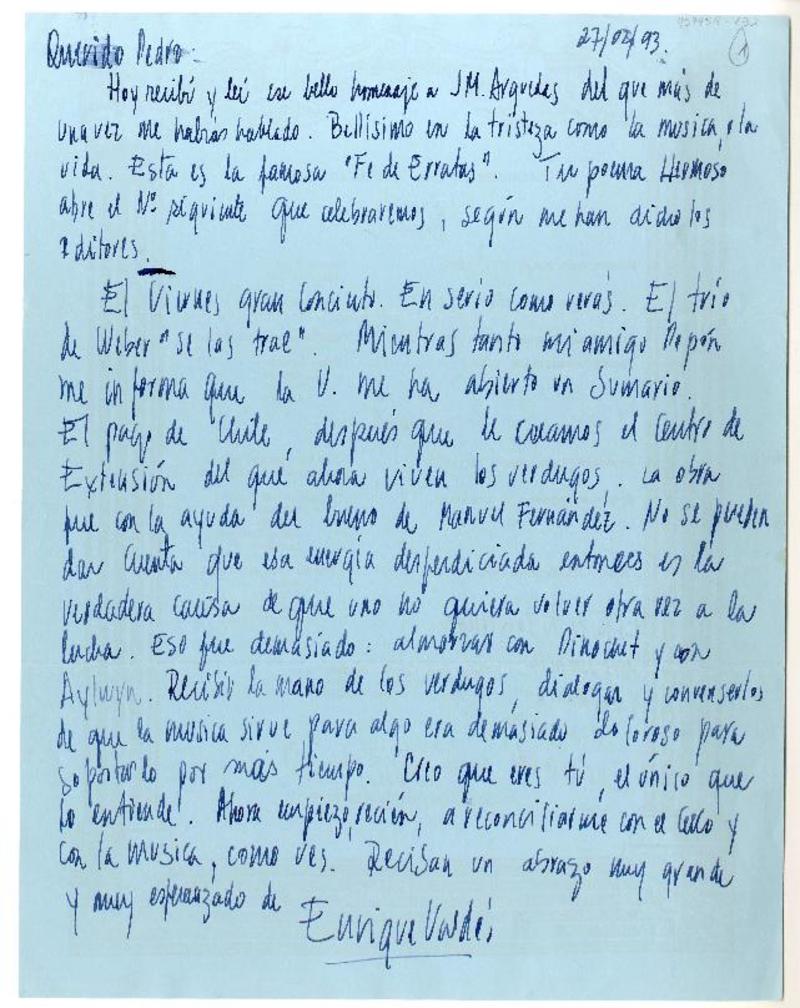 27/02/93.
1
Querido Pedro:
Hoy recibí y leí ese bello homenaje a J.M. Arguedas del que más de
una vez me habías hablado. Bellísimo en la tristeza como la musica, o la
vida. Esta es la famosa "Fe de Erratas". Tu poema Hermoso
abre el Nº siguiente que celebraremos, según me han dicho los
editores.
El Viernes gran concierto. En serio como verás. El trío
de Weber "se las trae". Mientras tanto mi amigo Pepón
me informa que la U. me ha abierto un Sumario.
El pago de Chile, después que le creamos el Centro de
Extensión del que ahora viven los verdugos. La obra
fue con la ayuda del bueno de Manuel Fernández. No se pueden
dar cuenta que esa energía desperdiciada entonces es la
verdadera causa de que uno no quiera volver otra vez a la
lucha. Eso fue demasiado: almorzar con Pinochet y con
Aylwyn. Recibir la mano de los verdugos, dialogar y convenserlos
de que la musica sirve para algo era demasiado doloroso para
soportarlo por más tiempo. Creo que eres tú, el único que
lo entiende. Ahora empiezo, recién, a reconciliarme con el Cello y
con la musica, como ves. Reciban un abrazo muy grande
y muy esperanzado de
Enrique Valdés